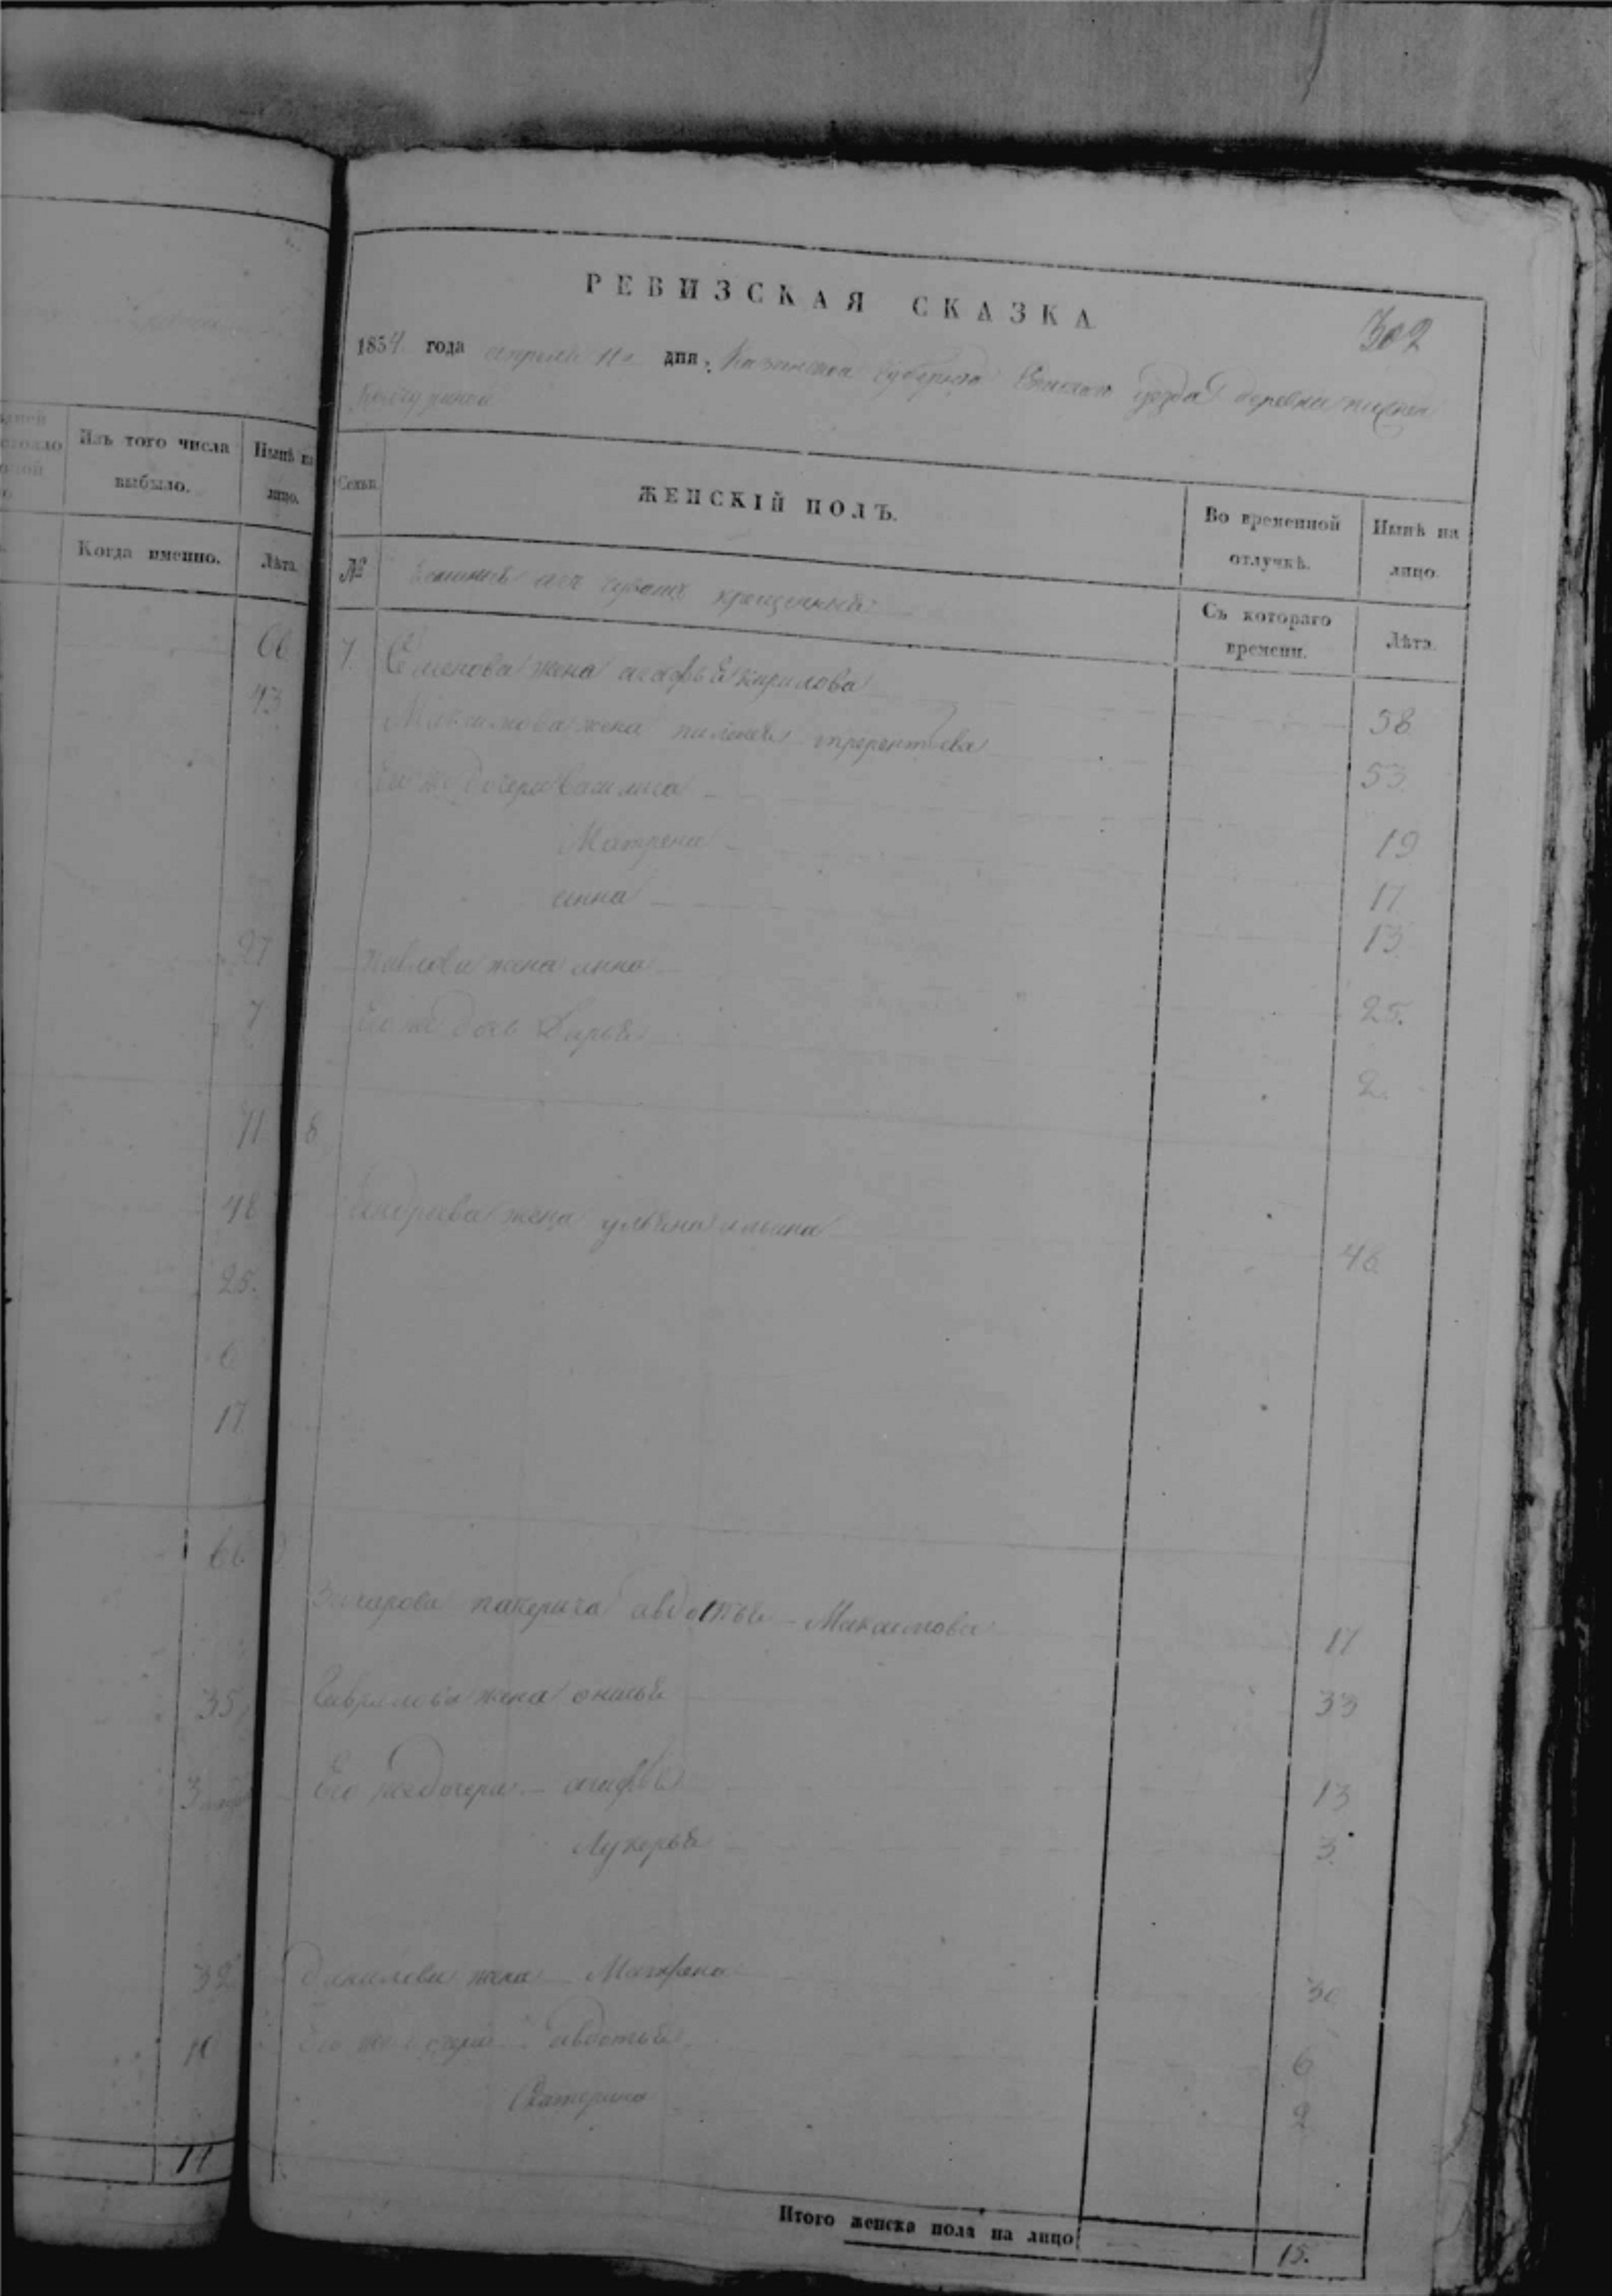 стояло
Изъ того числа
выбыло.
Нынѣ на
лицо.
Когда именно.
Лѣта.
66
43
27
7
71
48
25.
6
17
66
35
3
32
10
11
РЕВИЗСКАЯ СКАЗКА
302
1854 года апреля 11 дня, Казанской губернии уезда деревни
Семьи.
ЖЕНСКІЙ ПОЛЪ.
Во временной
отлучкѣ.
Нынѣ на
лицо.
№
изъ чувашъ крещеныя
Съ котораго
времени.
Лѣта.
7. Семенова жена агафья кирилова 58
Максимова жена терентьева 53.
Его же дочери василиса 19
Матрена 17
анна 13
павлова жена анна 25.
Его же дочь Дарья 2.
8
андреева жена ульяна ильина 46
Захарова авдотья Максимова 17
Гаврилова жена 33
Его же дочери агафья 13
Лукерья 3.
данилова жена Матрена 30
Его же дочери авдотья 6
Екатерина 2
Итого женска пола на лицо 15.